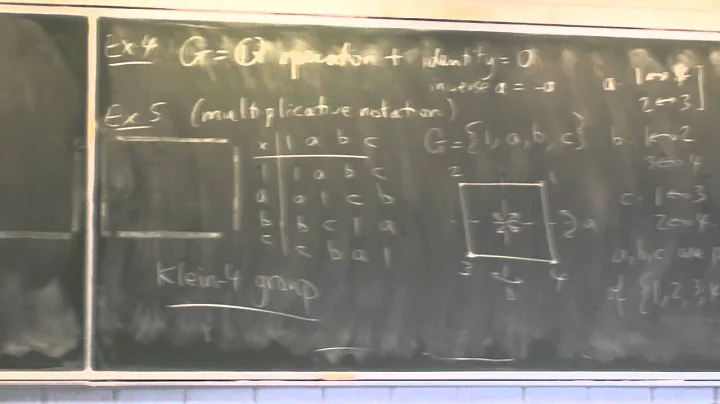 Ex 4 G = Q operation + identity = 0
inverse a = -a
Ex 5 (multiplicative notation)
x 1 a b c
1 1 a b c
a a 1 c b
b b c 1 a
c c b a 1
Klein-4 group
G = {1, a, b, c}
2 1
a
3 4
b
a. 1↔4
2↔3
b. 1↔2
3↔4
c. 1↔3
2↔4
a, b, c are
of {1, 2, 3,